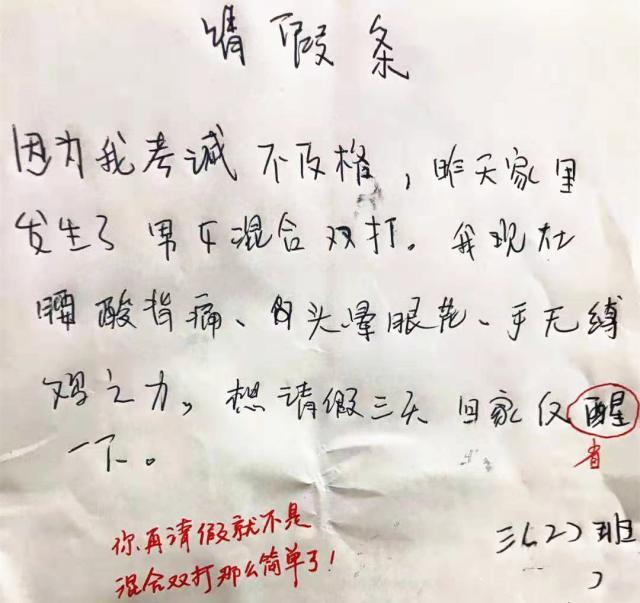 请假条
因为我考诚不及格，昨天家里
发生了男女混合双打。我现在
腰酸背痛、头晕眼花、手无缚
鸡之力。想请假三天回家仅醒
省
一下。
三(2)班
你再请假就不是
混合双打那么简单了！